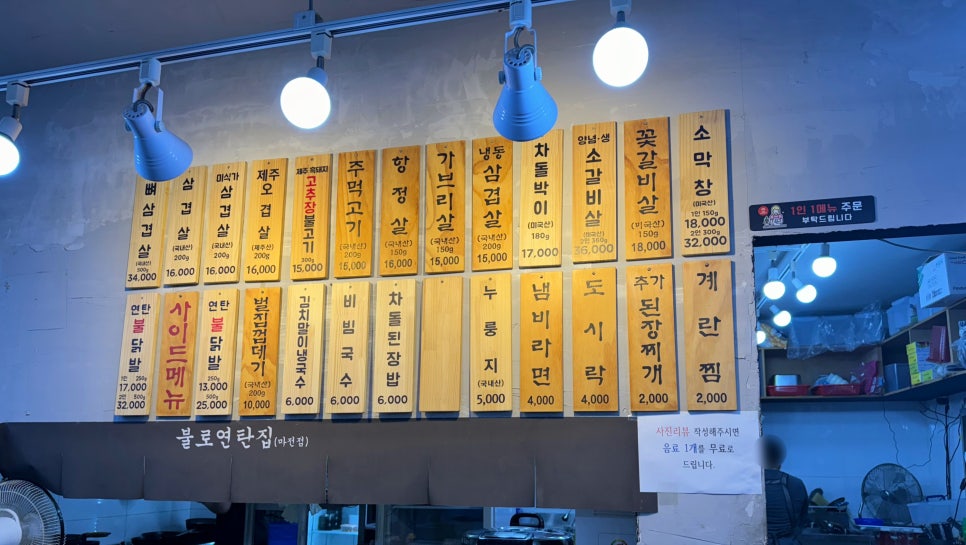 뼈삼겹살
(국내산)
500g
34,000
삼겹살
(국내산)
200g
16,000
미식가
삼겹살
(국내산)
200g
16,000
제주
오겹살
(제주산)
200g
16,000
제주 흑돼지
고추장불고기
300g
15,000
주먹고기
(국내산)
200g
15,000
항정살
(국내산)
150g
15,000
가브리살
(국내산)
150g
15,000
냉동
삼겹살
(국내산)
200g
15,000
차돌박이
(미국산)
180g
17,000
양념·생
소갈비살
(미국산)
2인 360g
36,000
꽃갈비살
(미국산)
150g
18,000
소막창
(미국산)
1인 150g
18,000
2인 300g
32,000
연탄
불닭발
1인 250g
17,000
2인 500g
32,000
사이드메뉴
연탄
불닭발
250g
13,000
500g
25,000
벌집껍데기
(국내산)
200g
10,000
김치말이냉국수
6,000
비빔국수
6,000
차돌된장밥
6,000
누룽지
(국내산)
5,000
냄비라면
4,000
도시락
4,000
추가
된장찌개
2,000
계란찜
2,000
1인 1메뉴 주문
부탁드립니다
불로연탄집(마전점)
사진리뷰 작성해주시면
음료 1개를 무료로
드립니다.